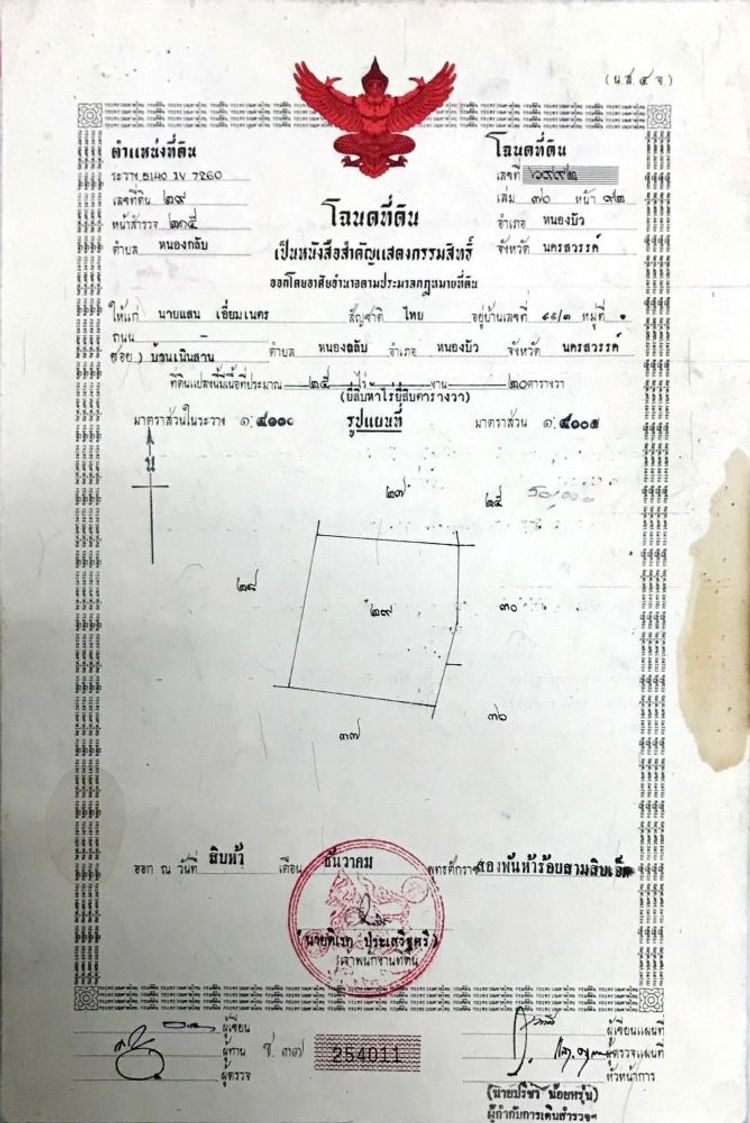 (น.ส. ๔ จ)
ตำแหน่งที่ดิน
ระวาง 5140 IV 7260
เลขที่ดิน ๒๙
หน้าสำรวจ ๒๑๕
ตำบล หนองกลับ
โฉนดที่ดิน
เลขที่ ๖๙๙๒
เล่ม ๗๐ หน้า ๙๒
อำเภอ หนองบัว
จังหวัด นครสวรรค์
โฉนดที่ดิน
เป็นหนังสือสำคัญแสดงกรรมสิทธิ์
ออกโดยอาศัยอำนาจตามประมวลกฎหมายที่ดิน
ให้แก่ นายแสน เอี่ยมเนตร สัญชาติ ไทย อยู่บ้านเลขที่ ๕๕/๓ หมู่ที่ ๑
ถนน -
ซอย ) บ้านเนินสาน ตำบล หนองกลับ อำเภอ หนองบัว จังหวัด นครสวรรค์
ที่ดินแปลงนี้มีเนื้อที่ประมาณ ๒๕ ไร่ งาน ๒๐ ตารางวา
(ยี่สิบห้าไร่ยี่สิบตารางวา)
มาตราส่วนในระวาง ๑: รูปแผนที่ มาตราส่วน ๑:
น
๒๗
๒๕
๒๘
๒๙
๓๐
๓๗
ออก ณ วันที่ สิบห้า เดือน ธันวาคม พุทธศักราช สองพันห้าร้อยสามสิบเอ็ด
ประเสริฐศรี )
เจ้าพนักงานที่ดิน
ผู้เขียน
ผู้ทาน
ผู้ตรวจ
ช. ๓๗
254011
ผู้เขียนแผนที่
ผู้ตรวจแผนที่
หัวหน้าการ
(นายปรีชา น้อยหรุ่น)
ผู้กำกับการเดินสำรวจฯ